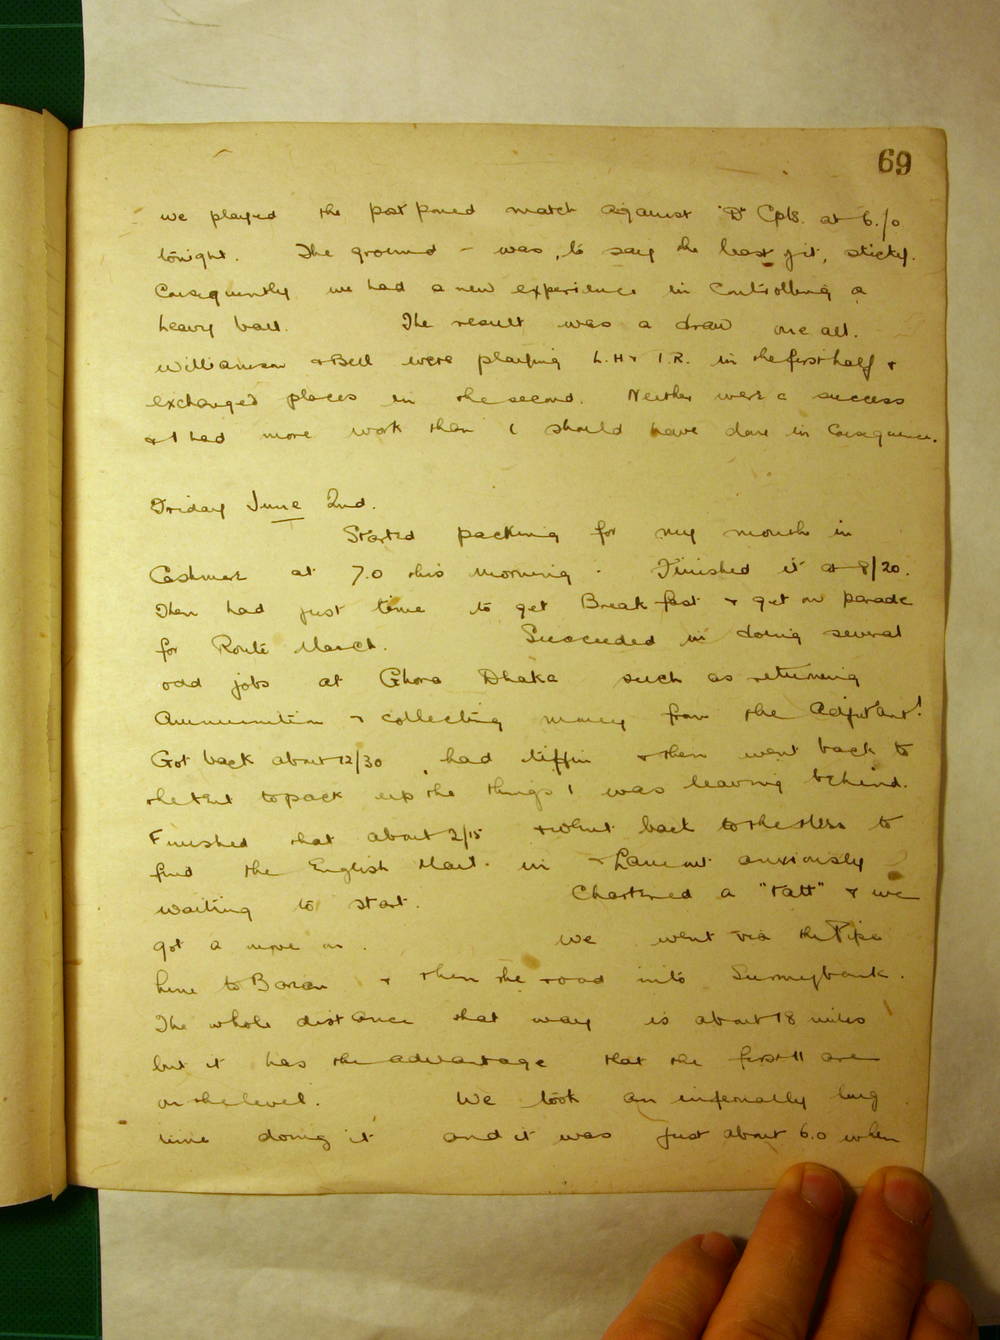 69
we played the postponed match against "D" Cpts. at 6/0
tonight. The ground - was, to say the least of it, sticky.
Consequently we had a new experience in controlling a
heavy ball. The result was a draw one all.
Williamson & Bell were playing L.H & I.R. in the first half &
exchanged places in the second. Neither were a success
& I had more work than I should have done in consequence.
Friday June 2nd.
Started packing for my month in
Cashmere at 7.0 this morning. Finished it at 8/20.
Then had just time to get Breakfast & get on parade
for Route March. Succeeded in doing several
odd jobs at Ghora Dhaka such as returning
Ammunition & collecting money from the Adjutant!
Got back about 12/30, had tiffin & then went back to
the tent to pack up the things I was leaving behind.
Finished that about 2/15 & went back to the Mess to
find the English Mail in & anxiously
waiting to start. Chartered a "tatt" & we
got a move on. We went via the Pipe
line to Barian & then the road into Sunnybank.
The whole distance that way is about 18 miles
but it has the advantage that the first 11 are
on the level. We took an infernally long
time doing it and it was just about 6.0 when